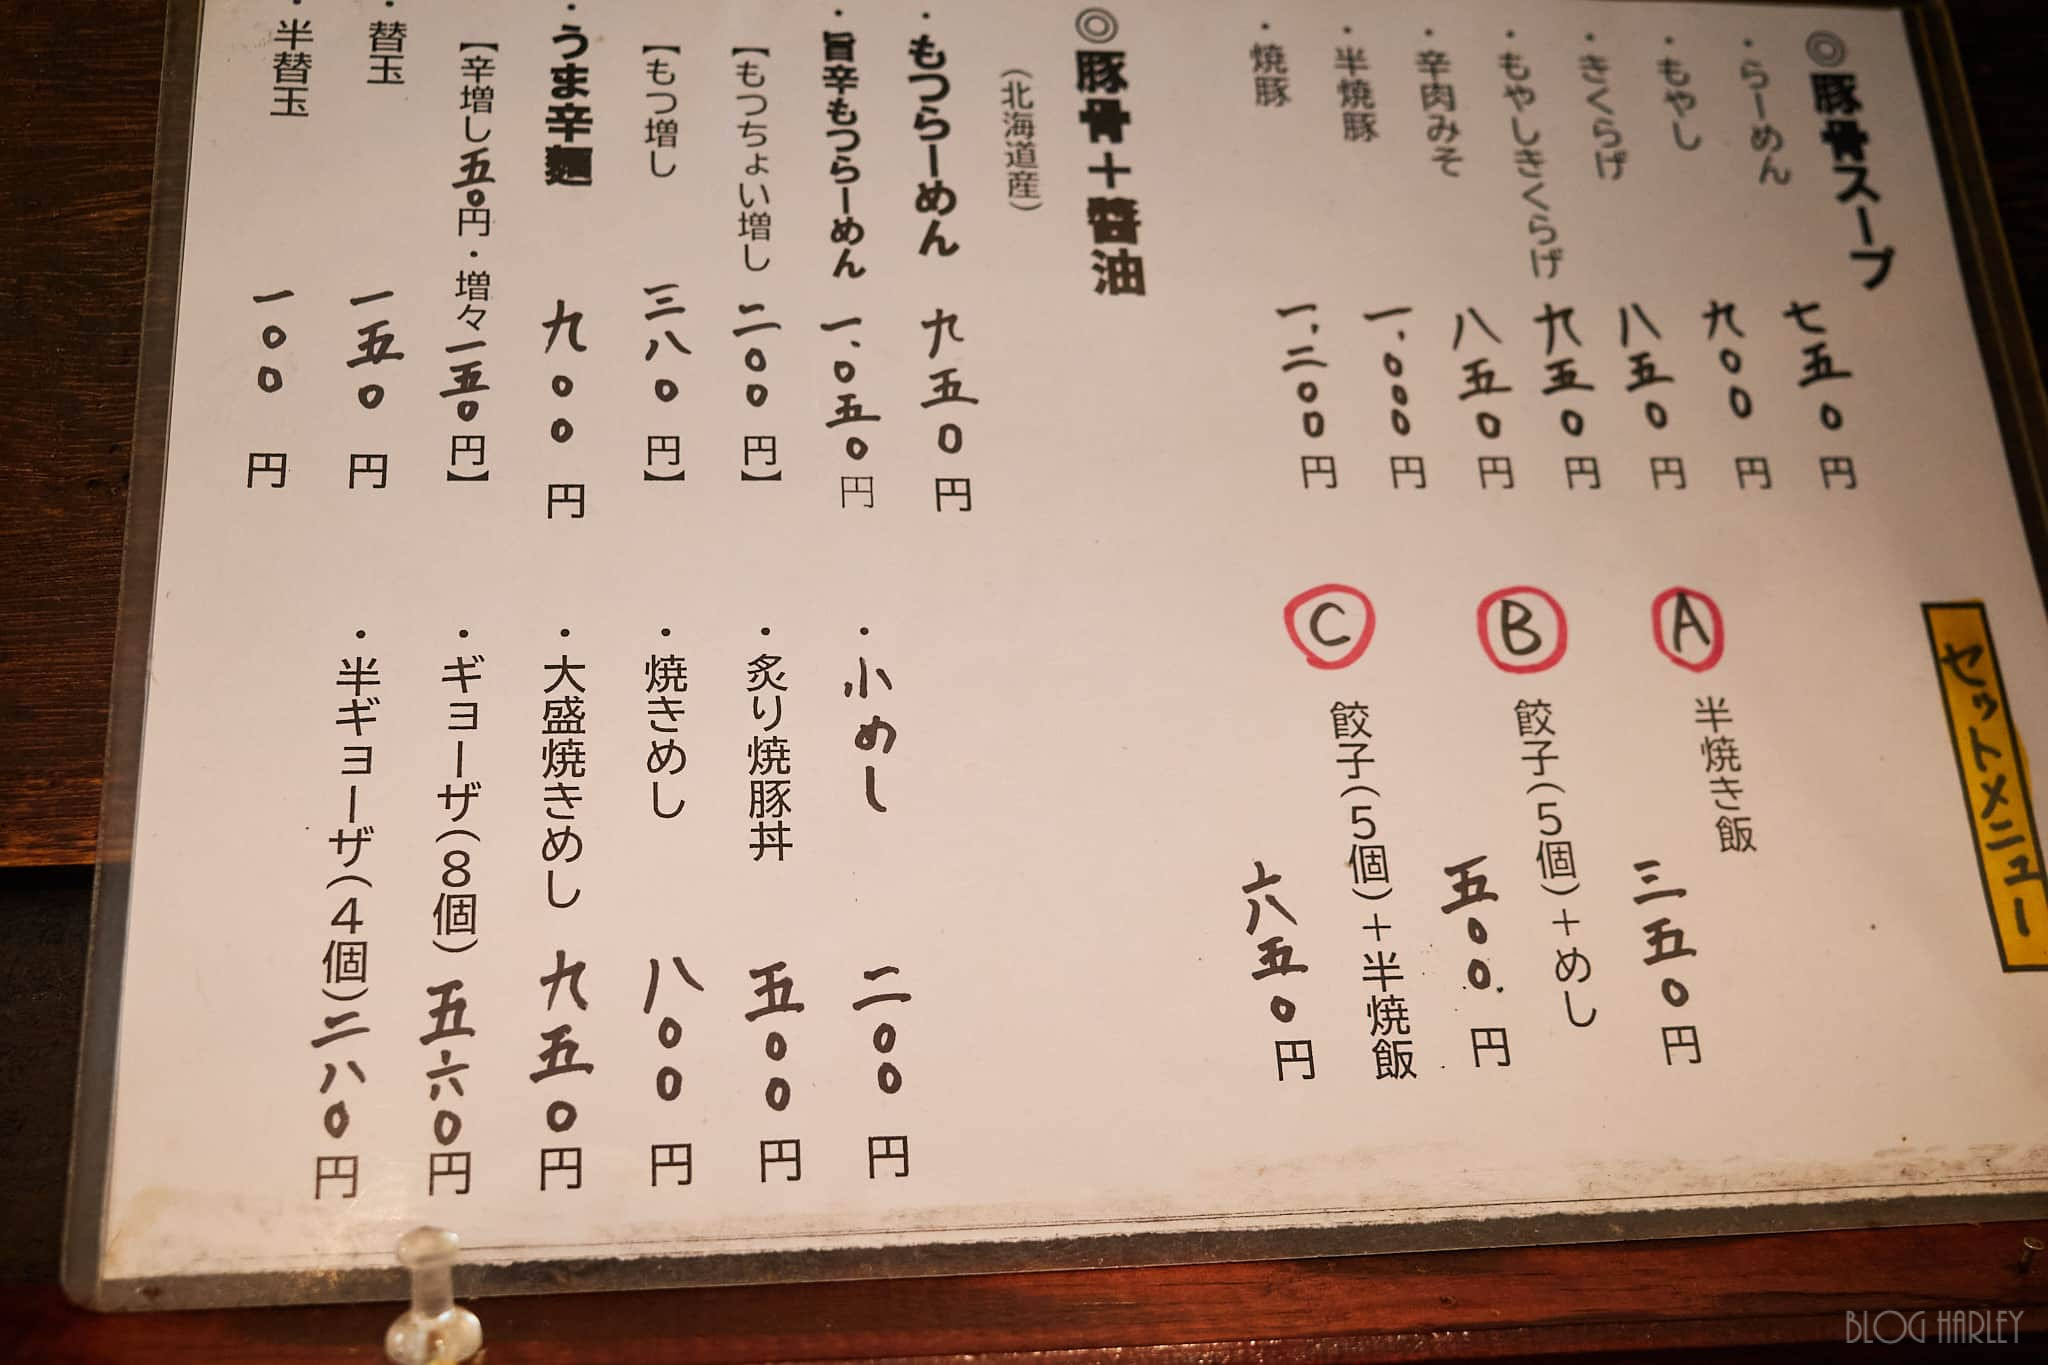 ◎豚骨スープ
・らーめん 七五〇円
・もやし 九〇〇円
・きくらげ 八五〇円
・もやしきくらげ 九五〇円
・辛肉みそ 八五〇円
・半焼豚 一、〇〇〇円
・焼豚 一、二〇〇円
◎豚骨＋醤油
（北海道産）
・もつらーめん 九五〇円
・旨辛もつらーめん 一、〇五〇円
【もつちょい増し 二〇〇円】
【もつ増し 三八〇円】
・うま辛麺 九〇〇円
【辛増し五〇円・増々一五〇円】
・替玉 一五〇円
・半替玉 一〇〇円
セットメニュー
A 半焼き飯 三五〇円
B 餃子（５個）＋めし 五〇〇円
C 餃子（５個）＋半焼飯 六五〇円
・小めし 二〇〇円
・炙り焼豚丼 五〇〇円
・焼きめし 八〇〇円
・大盛焼きめし 九五〇円
・ギョーザ（８個）五六〇円
・半ギョーザ（４個）二八〇円
BLOG HARLEY